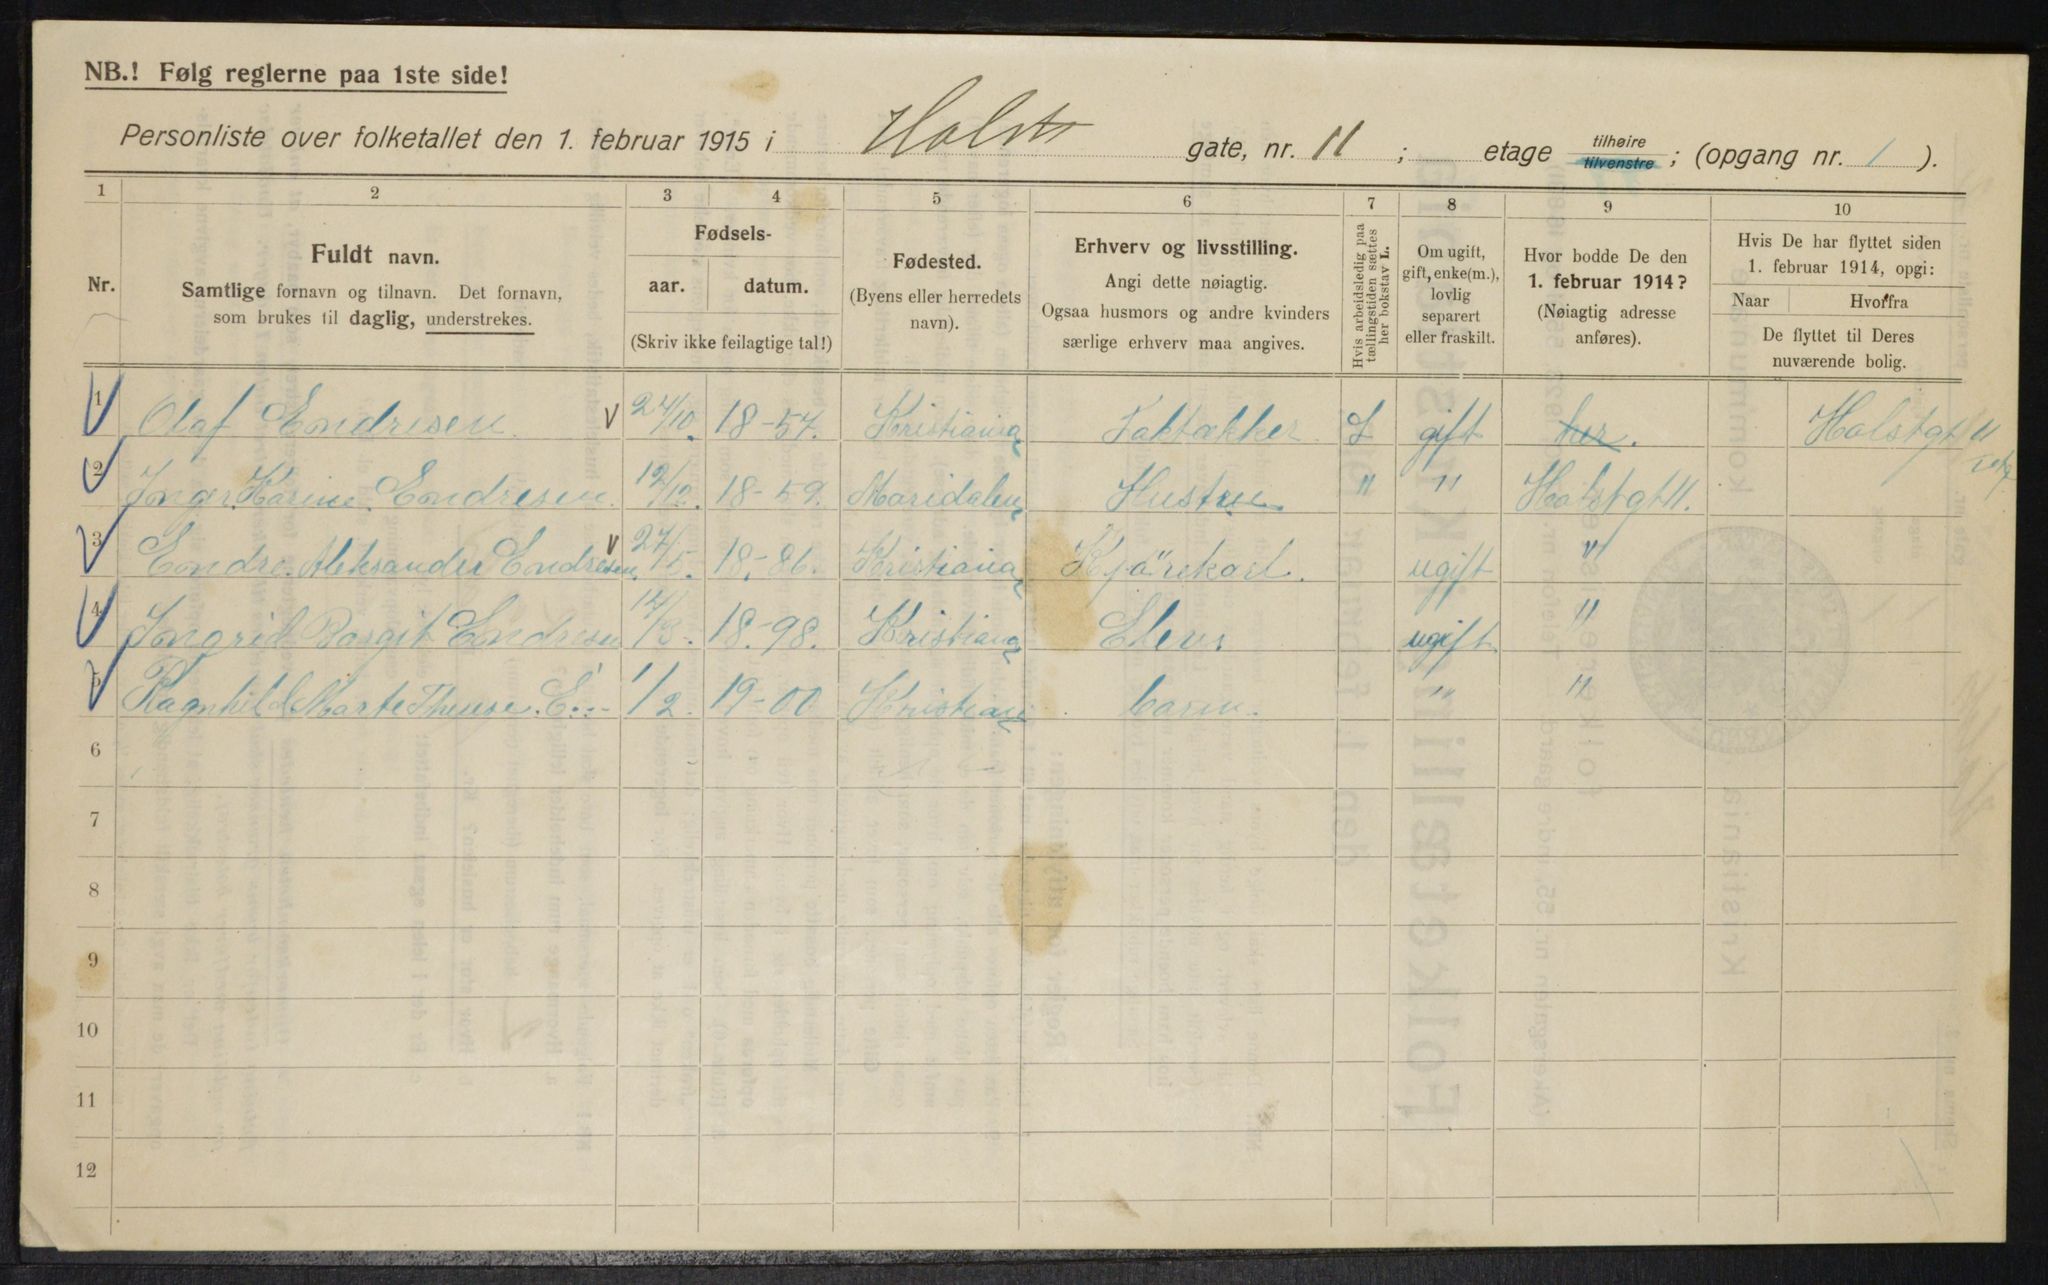 NB.! Følg reglerne paa 1ste side!
Personliste over folketallet den 1. februar 1915 i Holsts gate, nr. 11 ; etage tilhøire tilvenstre ; (opgang nr. 1 ).
1 2 3 4 5 6 7 8 9 10
Nr.
Fuldt navn.
Samtlige fornavn og tilnavn. Det fornavn,
som brukes til daglig, understrekes.
Fødsels-
aar. datum.
(Skriv ikke feilagtige tal!)
Fødested.
(Byens eller herredets
navn).
Erhverv og livsstilling.
Angi dette nøiagtig.
Ogsaa husmors og andre kvinders
særlige erhverv maa angives.
Hvis arbeidsledig paa
tællingstiden sættes
her bokstav L.
Om ugift,
gift, enke(m.),
lovlig
separert
eller fraskilt.
Hvor bodde De den
1. februar 1914?
(Nøiagtig adresse
anføres).
Hvis De har flyttet siden
1. februar 1914, opgi:
Naar Hvorfra
De flyttet til Deres
nuværende bolig.
1 Olaf Endresen 24/10. 18-57. Kristiania Taktækker L gift her. Holstgt 11
2 Inger Karine Endresen 12/12. 18-59. Maridalen Hustru " " Holstgt 11.
3 Endre Aleksander Endresen 27/5. 18-86. Kristiania Kjörekarl. ugift "
4 Ingrid Borgit Endresen 12/3. 18-98. Kristiania Elev. ugift "
5 Ragnhild Marte Theuse E... 1/2. 19-00 Kristian barn. " "
6
7
8
9
10
11
12